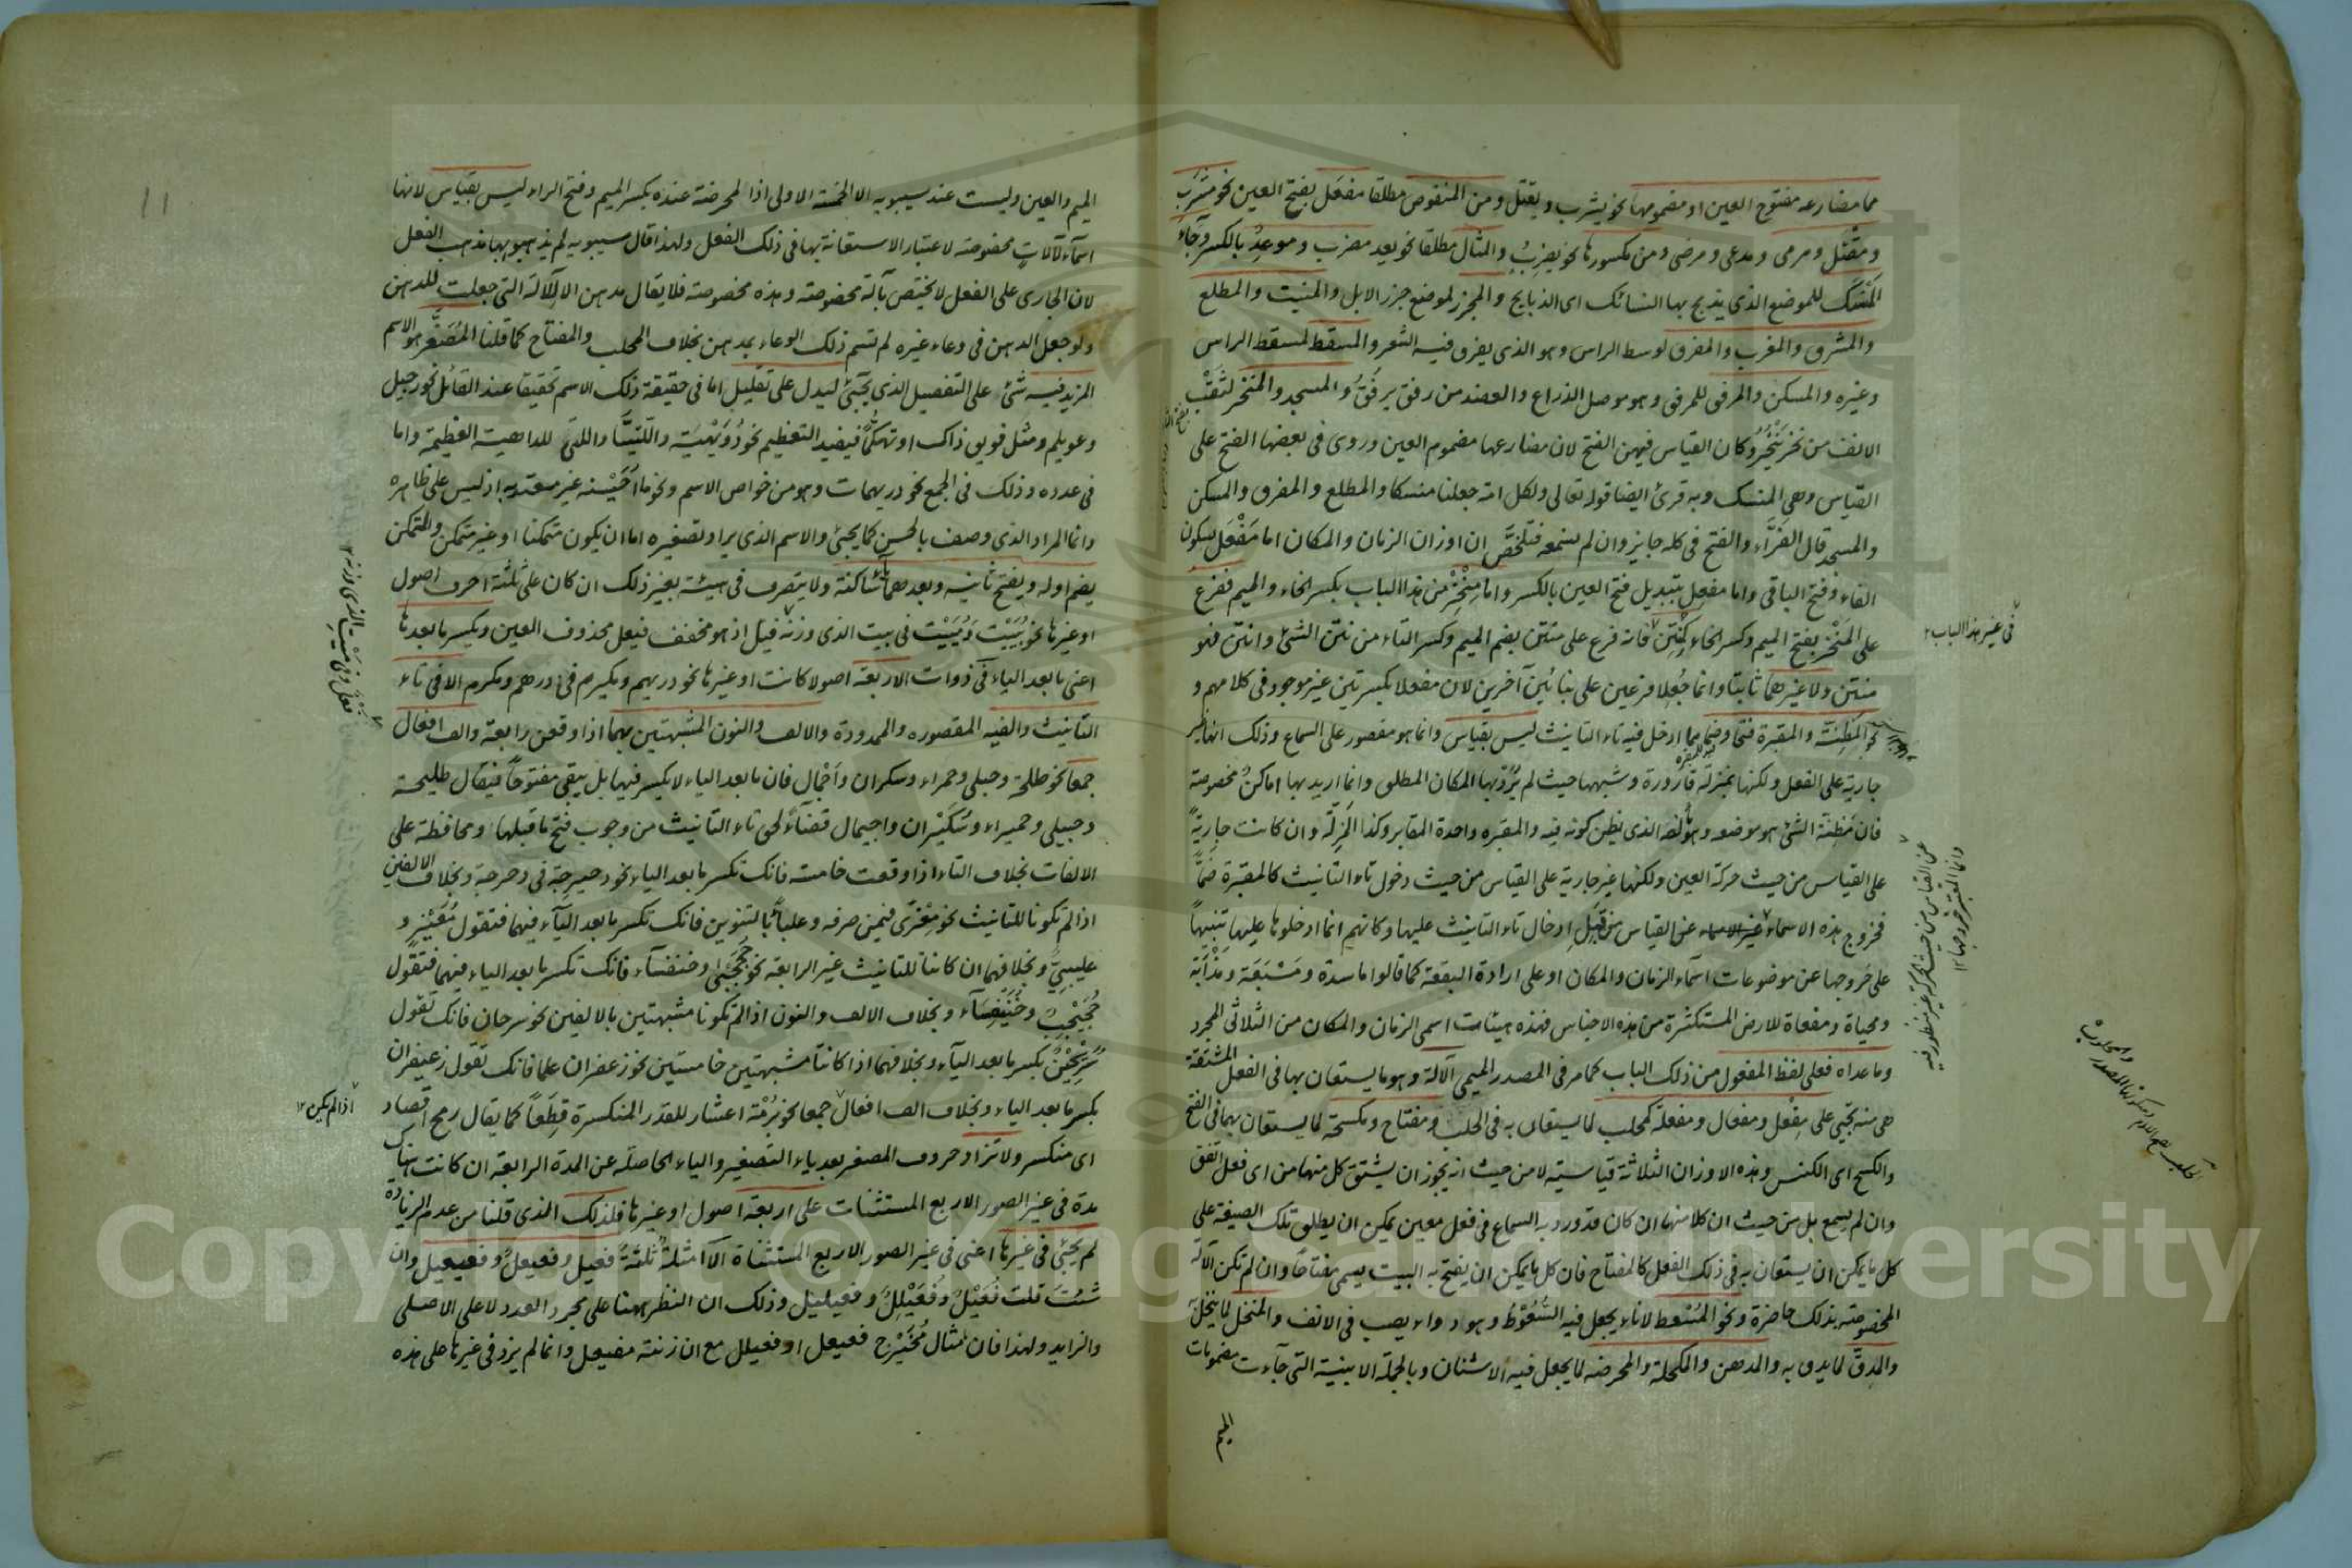 مما مضارعه مفتوح العين او مضمومها نحو يشرب ويقتل ومن المنقوص مطلقا مفعل بفتح العين نحو مشرب
ومقتل ومرمى ومدعى ومرضى ومن مكسورها نحو يضرب والمثال مطلقا نحو يعد مضرب وموعد بالكسر وجاء
المنسك للموضع الذي يذبح بها النسائك اى الذبايح والمجزر لموضع جزر الابل والمنبت والمطلع
والمشرق والمغرب والمفرق لوسط الراس وهو الذى يفرق فيه الشعر والمسقط لمسقط الراس
وغيره والمسكن والمرفق للمرفق وهو موصل الذراع والعضد من رفق يرفق والمسجد والمنخر لثقب
الانف من نخر ينخر وكان القياس فيهن الفتح لان مضارعها مضموم العين وروى فى بعضها الفتح على
القياس وهى المنسك وبه قرئ ايضا قوله تعالى ولكل امة جعلنا منسكا والمطلع والمفرق والمسكن
والمسجد قال الفراء والفتح فى كله جايز وان لم نسمعه فتلخص ان اوزان الزمان والمكان اما مفعل بسكون
الفاء وفتح الباقى واما مفعل بتبديل فتح العين بالكسر واما منخر من هذا الباب بكسر الخاء والميم ففرع
على المنخر بفتح الميم وكسر الخاء كمنتن فانه فرع على منتن بضم الميم وكسر التاء من نتن الشئ وانتن فهو
منتن ولا غيرهما ثابتا وانما جعلا فرعين على بنائين آخرين لان مفعلا بكسرتين غير موجود فى كلامهم و
نحو المظنة والمقبرة فتحا وضما مما ادخل فيه تاء التانيث ليس بقياس وانما هو مقصور على السماع وذلك انها غير
جارية على الفعل ولكنها بمنزلة قارورة وشبهها حيث لم يرد بها المكان المطلق وانما اريد بها اماكن مخصوصة
فان مظنة الشئ هو موضعه ومألفه الذى يظن كونه فيه والمقبره واحدة المقابر وكذا المزلة وان كانت جارية
على القياس من حيث حركة العين ولكنها غير جارية على القياس من حيث دخول تاء التانيث كالمقبرة ضما
فخروج هذه الاسماء عن القياس من قبل ادخال تاء التانيث عليها وكانهم انما ادخلوها عليها تنبيها
على خروجها عن موضوعات اسماء الزمان والمكان او على ارادة البقعة كما قالوا ماسدة ومسبعة ومذأبة
ومحياة ومفعاة للارض المستكثرة من هذه الاجناس فهذه هيئات اسمى الزمان والمكان من الثلاثى المجرد
وما عداه فعلى لفظ المفعول من ذلك الباب كما مر فى المصدر الميمى الآلة وهو ما يستعان بها فى الفعل المشتقة
هى منه تجئ على مفعل ومفعال ومفعلة كمحلب لما يستعان به فى الحلب ومفتاح ومكسحة لما يستعان بهما فى الفتح
والكسح اى الكنس وهذه الاوزان الثلاثة قياسية لا من حيث انه يجوز ان يشتق كل منها من اى فعل اتفق
وان لم يسمع بل من حيث ان كلا منها ان كان قد ورد به السماع فى فعل معين يمكن ان يطلق تلك الصيغة على
كل ما يمكن ان يستعان به فى ذلك الفعل كالمفتاح فان كل ما يمكن ان يفتح به البيت يسمى مفتاحا وان لم تكن الآلة
المخصوصة بذلك حاضرة ونحو المسعط لاناء يجعل فيه السعوط وهو دواء يصب فى الانف والمنخل لما ينخل به
والمدق لما يدق به والمدهن والمكحلة والمحرضه لما يجعل فيه الاشنان وبالجملة الابنية التى جاءت مضمومات
الميم
فى غير هذا الباب
عن القياس من حيث الحركة غير منظور فيه
وانما المعتبر خروجها
الميم والعين وليست عند سيبويه الا الخمسة الاولى اذا المحرضة عنده بكسر الميم وفتح الراء ليس بقياس لانها
اسماء لآلات مخصوصة لا عتبار الاستعانة بها فى ذلك الفعل ولهذا قال سيبويه لم يذهبوا بها مذهب الفعل
لان الجارى على الفعل لا يختص بآلة مخصوصة وهذه مخصوصة فلا يقال مدهن الا للآلة التى جعلت للدهن
ولو جعل الدهن فى وعاء غيره لم تسم ذلك الوعاء بمدهن بخلاف المحلب والمفتاح كما قلنا المصغر هو الاسم
المزيد فيه شئ على التفصيل الذى يجئ ليدل على تقليل اما فى حقيقة ذلك الاسم تحقيقا عند القائل نحو رجيل
وعويلم ومثل فويق ذاك او تهكما فيفيد التعظيم نحو دويهية واللتيا واللتى للداهية العظيمة واما
فى عدده وذلك فى الجمع نحو دريهمات وهو من خواص الاسم ونحو ما احيسنه غير معتد به اذ ليس على ظاهره
وانما المراد الذى وصف بالحسن كما يجئ والاسم الذى يراد تصغيره اما ان يكون متمكنا او غير متمكن والمتمكن
يضم اوله ويفتح ثانيه وبعدهما ياء ساكنة ولا يتصرف فى هيئة بغير ذلك ان كان على ثلثة احرف اصول
او غيرها نحو بييت ومييت فى بيت الذى وزنه فيل اذ هو مخفف فيعل محذوف العين ويكسر ما بعدها
اعنى ما بعد الياء فى ذوات الاربعة اصولا كانت او غيرها نحو دريهم ومكيرم فى درهم ومكرم الا فى تاء
التانيث والفيه المقصوره والممدودة والالف والنون المشبهتين بهما اذا وقعن رابعة والف افعال
جمعا نحو طلحة وحبلى وحمراء وسكران واجمال فان ما بعد الياء لا يكسر فيها بل يبقى مفتوحا فيقال طليحة
وحبيلى وحميراء وسكيران واجيمال قضاء لحق تاء التانيث من وجوب فتح ما قبلها ومحافظة على
الالفات بخلاف التاء اذا وقعت خامسة فانك تكسر ما بعد الياء نحو دحيرجة فى دحرجة وبخلاف الالفين
اذا لم تكونا للتانيث نحو معزى فيمن صرفه وعلباء بالتنوين فانك تكسر ما بعد الياء فيهما فتقول معيز و
عليبي وبخلافهما ان كانتا للتانيث غير الرابعة نحو جحجبى وخنفساء فانك تكسر ما بعد الياء فيهما فتقول
جحيجب وخنيفساء وبخلاف الالف والنون اذا لم تكونا مشبهتين بالالفين نحو سرحان فانك تقول
سريحين بكسر ما بعد الياء وبخلافهما اذا كانتا مشبهتين خامستين نحو زعفران علما فانك تقول زعيفران
بكسر ما بعد الياء وبخلاف الف افعال جمعا نحو برمة اعشار للقدر المنكسرة قطعا كما يقال رمح اقصاد
اى منكسر ولا تزاد حروف المصغر بعد ياء التصغير والياء الحاصلة عن المدة الرابعة ان كانت هناك
مدة فى غير الصور الاربع المستثنات على اربعة اصول او غيرها فلذلك الذى قلنا من عدم الزيادة
لم يجئ فى غيرها اعنى فى غير الصور الاربع المستثناة الا امثلة ثلثة فعيل وفعيعل وفعيعيل وان
شئت قلت فعيل وفعيلل وفعيليل وذلك ان النظر ههنا على مجرد العدد لا على الاصلى
والزايد ولهذا فان مثال مخيرج فعيعل او فعيلل مع ان زنته مفيعل وانما لم يزد فى غيرها على هذه
اذا لم يكن
11
Copyright © King Saud University